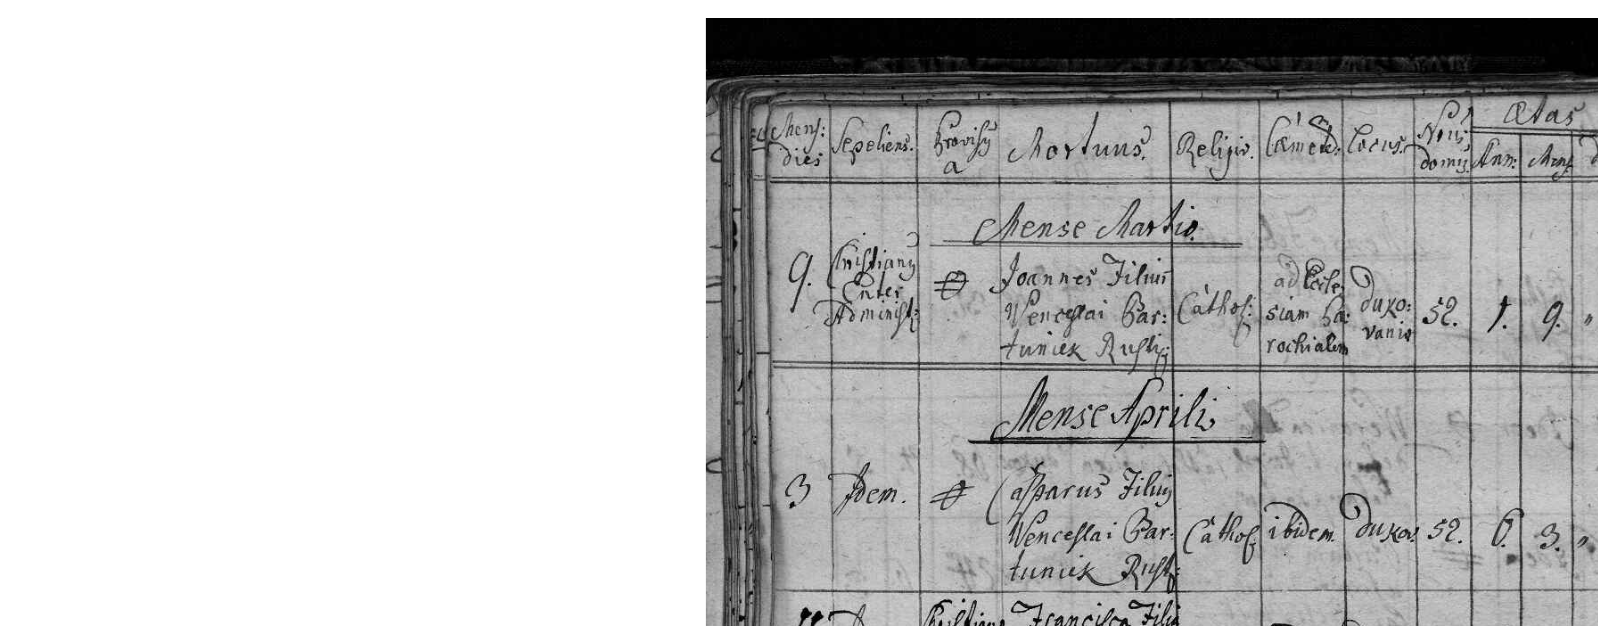 Mens: dies Sepeliens. Provisus a Mortuus. Religio. Cœmet: Locus. Nrus domus Ætas
Ann: Mens
Mense Martio.
9. Cristianus Enter Administ: Joannes Filius Wenceslai Bar: tuniek Rusti: Cathol: ad Eccle: siam Pa: rochialem Duko: vanio 52. 1. 9. "
Mense Aprili
3 Idem. Casparus Filius Wenceslai Bar: tuniek Rusti: Cathol: ibidem. Dukov: 52. 6. 3. "
Francisca Filia